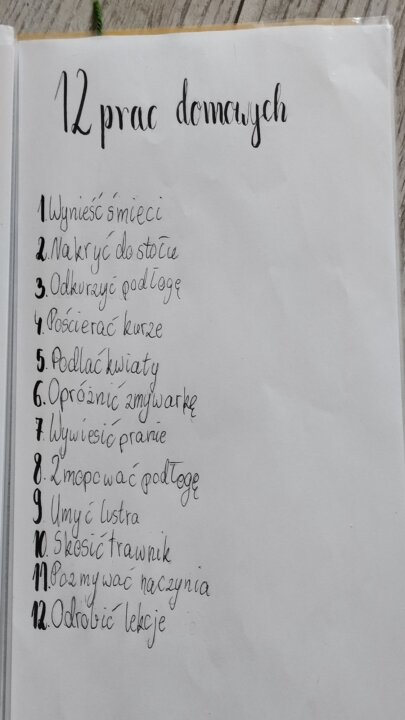 12 prac domowych
1. Wynieść śmieci
2. Nakryć do stołu
3. Odkurzyć podłogę
4. Pościerać kurze
5. Podlać kwiaty
6. Opróżnić zmywarkę
7. Wywiesić pranie
8. Zmopować podłogę
9. Umyć lustra
10. Skosić trawnik
11. Pozmywać naczynia
12. Odrobić lekcje